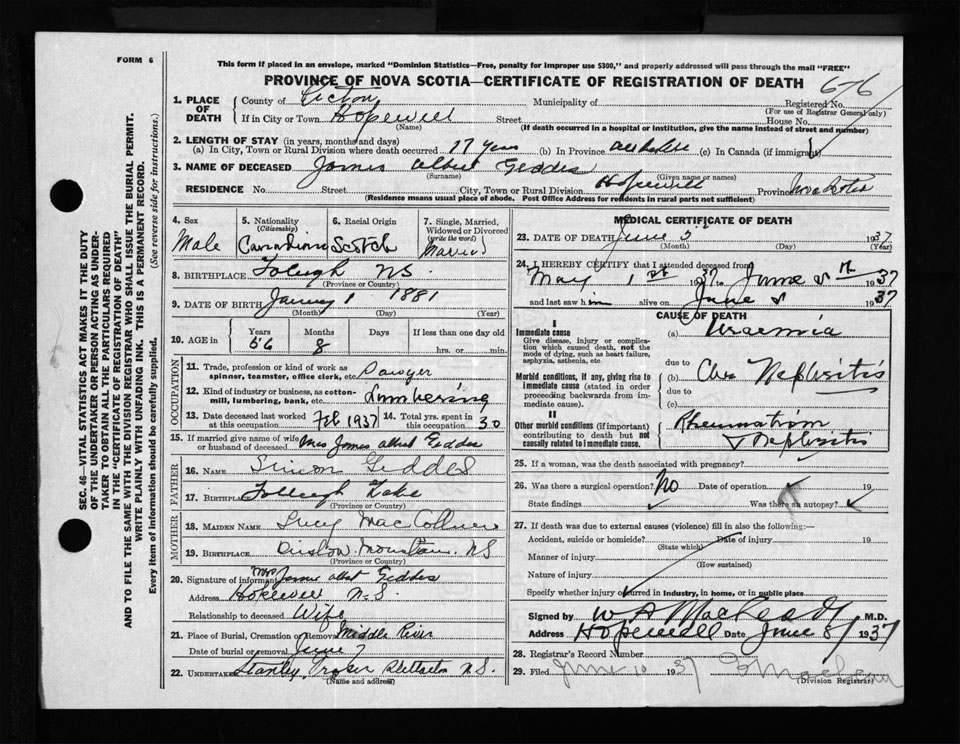 FORM 6
This form if placed in an envelope, marked "Dominion Statistics—Free, penalty for improper use $300," and properly addressed will pass through the mail "FREE"
PROVINCE OF NOVA SCOTIA—CERTIFICATE OF REGISTRATION OF DEATH
676
1. PLACE OF DEATH
County of Pictou Municipality of Registered No.
(For use of Registrar General only)
If in City or Town Hopewell Street House No.
(Name) (If death occurred in a hospital or institution, give the name instead of street and number)
2. LENGTH OF STAY (in years, months and days)
(a) In City, Town or Rural Division where death occurred 17 years (b) In Province all his life (c) In Canada (if immigrant)
3. NAME OF DECEASED James Albert Geddes
(Surname) (Given name or names)
RESIDENCE No. Street City, Town or Rural Division Hopewell Province Nova Scotia
(Residence means usual place of abode. Post Office Address for residents in rural parts not sufficient)
4. Sex
Male
5. Nationality
(Citizenship)
Canadian
6. Racial Origin
Scotch
7. Single, Married, Widowed or Divorced
(write the word)
Married
8. BIRTHPLACE NS.
(Province or Country)
9. DATE OF BIRTH 1 1881
(Month) (Day) (Year)
10. AGE in
Years
56
Months
8
Days
If less than one day old
hrs. or min.
OCCUPATION
11. Trade, profession or kind of work as spinner, teamster, office clerk, etc. Sawyer
12. Kind of industry or business, as cotton-mill, lumbering, bank, etc. Lumbering
13. Date deceased last worked at this occupation Feb 1937
14. Total yrs. spent in this occupation 30
15. If married give name of wife or husband of deceased Mrs James Albert Geddes
FATHER
16. NAME Simon Geddes
17. BIRTHPLACE
(Province or Country)
MOTHER
18. MAIDEN NAME Lucy
19. BIRTHPLACE Mountain. NS
(Province or Country)
20. Signature of informant Mrs James Albert Geddes
Address Hopewell N.S.
Relationship to deceased Wife
21. Place of Burial, Cremation or Removal Middle River
Date of burial or removal June 7
22. UNDERTAKER Stanley N.S.
(Name and address)
MEDICAL CERTIFICATE OF DEATH
23. DATE OF DEATH June 5 1937
(Month) (Day) (Year)
24. I HEREBY CERTIFY that I attended deceased from
May 1st 1937 to June 5th 1937
and last saw him alive on June 5 1937
CAUSE OF DEATH
I
Immediate cause
Give disease, injury or complication which caused death, not the mode of dying, such as heart failure, asphyxia, asthenia, etc.
(a) Uraemia
due to
Morbid conditions, if any, giving rise to immediate cause (stated in order proceeding backwards from immediate cause).
(b) Chr Nephritis
due to
(c)
II
Other morbid conditions (if important) contributing to death but not causally related to immediate cause.
Rheumatism
Nephritis
25. If a woman, was the death associated with pregnancy?
26. Was there a surgical operation? No Date of operation 19
State findings Was there an autopsy?
27. If death was due to external causes (violence) fill in also the following:—
Accident, suicide or homicide? Date of injury 19
(State which)
Manner of injury
(How sustained)
Nature of injury
Specify whether injury occurred in Industry, in home, or in public place
Signed by M.D.
Address Hopewell Date June 8/ 1937
28. Registrar's Record Number
29. Filed June 10 1937
(Division Registrar)
SEC. 46—VITAL STATISTICS ACT MAKES IT THE DUTY
OF THE UNDERTAKER OR PERSON ACTING AS UNDER-
TAKER TO OBTAIN ALL THE PARTICULARS REQUIRED
IN THE "CERTIFICATE OF REGISTRATION OF DEATH"
AND TO FILE THE SAME WITH THE DIVISION REGISTRAR WHO SHALL ISSUE THE BURIAL PERMIT.
WRITE PLAINLY WITH UNFADING INK. THIS IS A PERMANENT RECORD.
Every item of information should be carefully supplied. (See reverse side for instructions.)